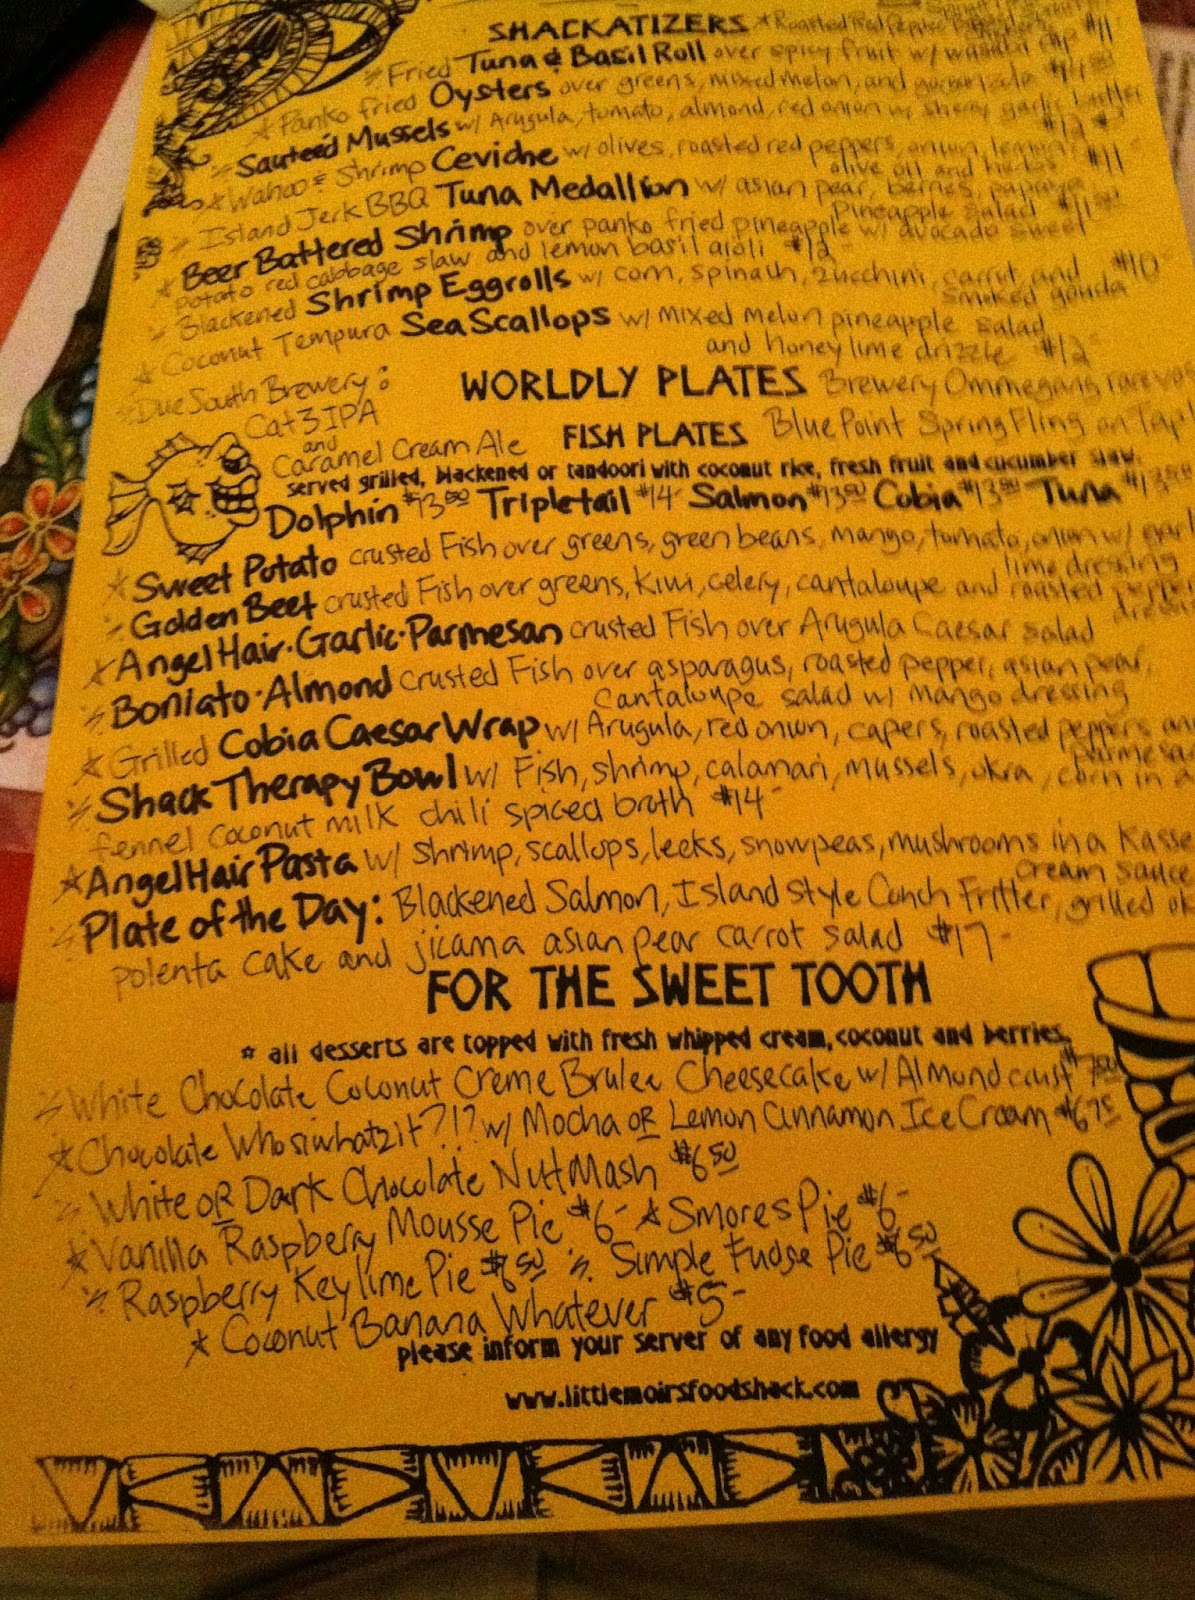 SHACKATIZERS ★ Roasted Red Pepper
Fried Tuna & Basil Roll over spicy fruit w/ wasabi $11
★ Panko fried Oysters over greens, mixed melon, and gorgonzola
Sauteed Mussels w/ Arugula, tomato, almond, red onion w/ sherry garlic butter $12
★ Wahoo & Shrimp Ceviche w/ olives, roasted red peppers, onion, lemon,
olive oil and herbs $11
Island Jerk BBQ Tuna Medallion w/ asian pear, berries, papaya
pineapple salad
★ Beer Battered Shrimp over panko fried pineapple w/ avocado sweet
potato red cabbage slaw and lemon basil aioli $12
Blackened Shrimp Eggrolls w/ corn, spinach, zucchini, carrot and
smoked gouda $10
★ Coconut Tempura Sea Scallops w/ mixed melon pineapple salad
and honey lime drizzle $12
Due South Brewery:
Cat 3 IPA
and
Caramel Cream Ale
WORLDLY PLATES Brewery Ommegang rare vos
FISH PLATES Blue Point Spring Fling on Tap!
served grilled, blackened or tandoori with coconut rice, fresh fruit and cucumber slaw.
Dolphin $13.50 Tripletail $14- Salmon $13.50 Cobia $13.50 Tuna $13.50
★ Sweet Potato crusted Fish over greens, green beans, mango, tomato, onion w/
lime dressing
Golden Beet crusted Fish over greens, kiwi, celery, cantaloupe and roasted pepper
★ Angel Hair·Garlic·Parmesan crusted Fish over Arugula Caesar salad
Boniato·Almond crusted Fish over asparagus, roasted pepper, asian pear,
cantaloupe salad w/ mango dressing
★ Grilled Cobia Caesar Wrap w/ Arugula, red onion, capers, roasted peppers and
Shack Therapy Bowl w/ Fish, shrimp, calamari, mussels, okra, corn in a
fennel coconut milk chili spiced broth $14-
★ Angel Hair Pasta w/ shrimp, scallops, leeks, snowpeas, mushrooms in a Kasse
cream sauce
Plate of the Day: Blackened Salmon, Island Style Conch Fritter, grilled ok
polenta cake and jicama asian pear carrot salad $17-
FOR THE SWEET TOOTH
★ all desserts are topped with fresh whipped cream, coconut and berries.
White Chocolate Coconut Creme Brulee Cheesecake w/ Almond crust $7.50
★ Chocolate Whosiwhatzit?!? w/ Mocha OR Lemon Cinnamon Ice Cream $6.75
White OR Dark Chocolate Nut Mash $6.50
★ Vanilla Raspberry Mousse Pie $6- ★ Smores Pie $6-
Raspberry Key lime Pie $6.50 Simple Fudge Pie $6.50
★ Coconut Banana Whatever $5-
please inform your server of any food allergy
www.littlemoirsfoodshack.com